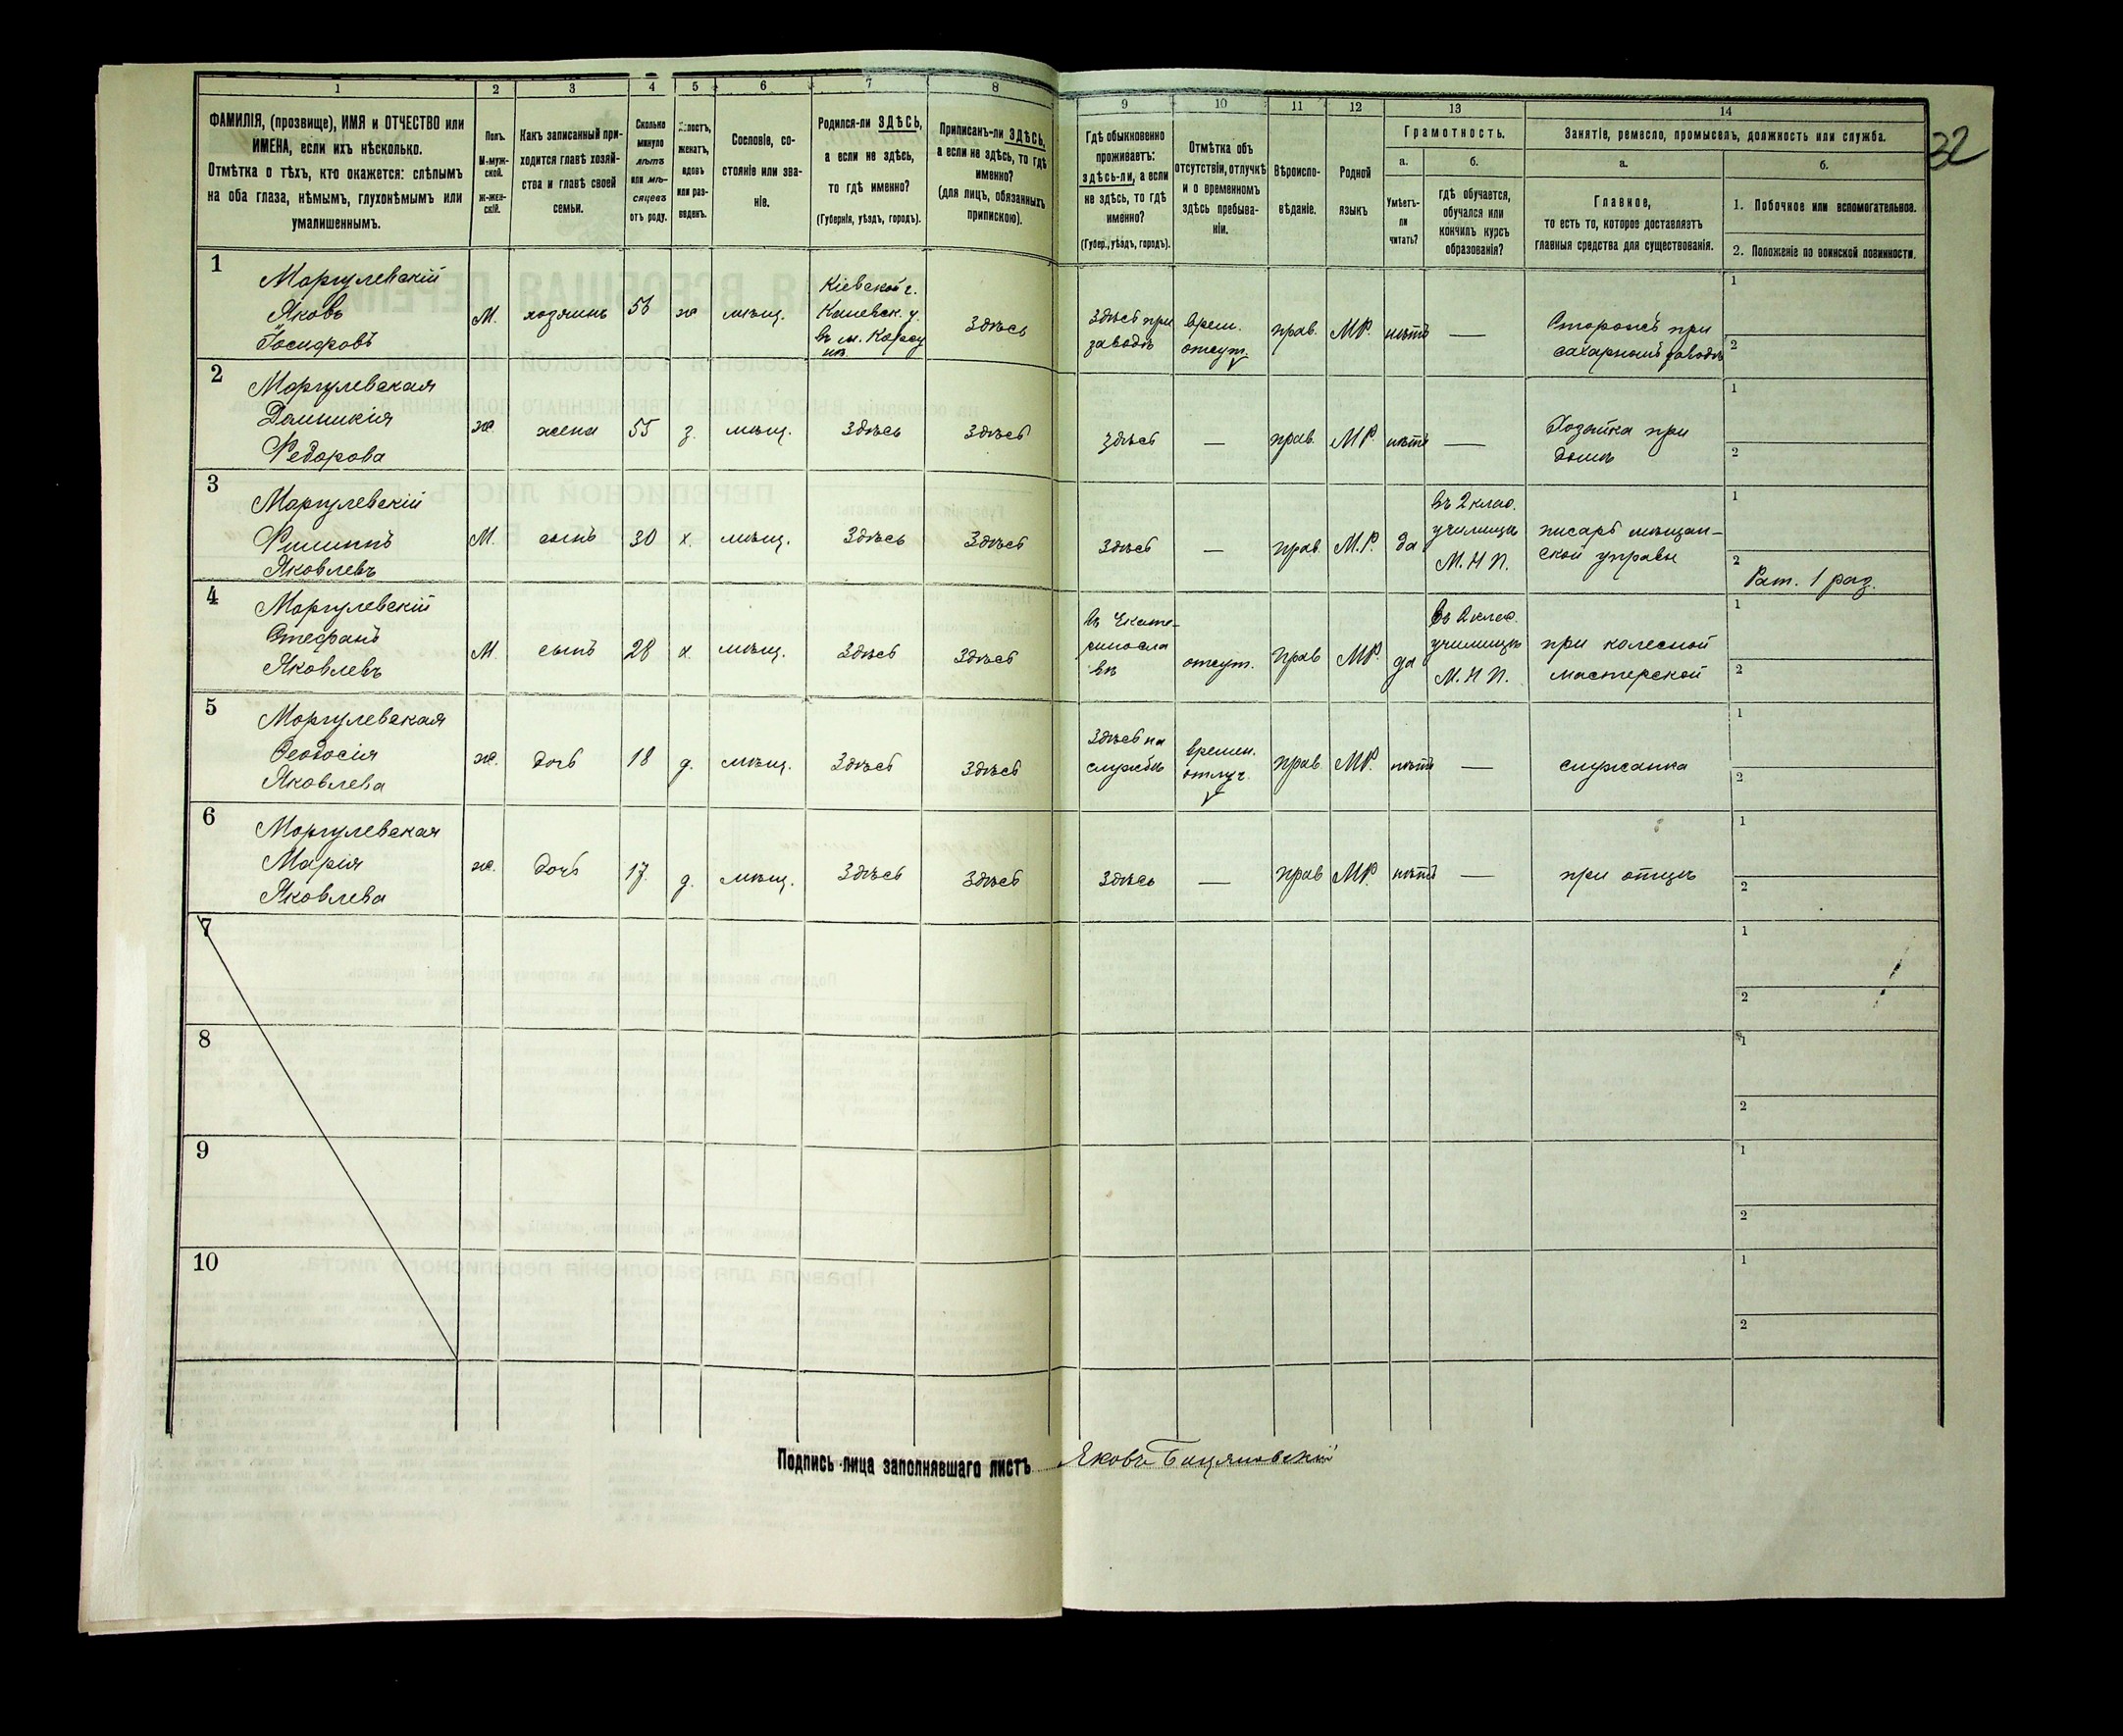 32
1 2 3 4 5 6 7 8 9 10 11 12 13 14
ФАМИЛІЯ, (прозвище), ИМЯ и ОТЧЕСТВО или
ИМЕНА, если ихъ нѣсколько.
Отмѣтка о тѣхъ, кто окажется: слѣпымъ
на оба глаза, нѣмымъ, глухонѣмымъ или
умалишеннымъ.
Полъ.
М-муж-
ской.
Ж-жен-
скій.
Какъ записанный при-
ходится главѣ хозяй-
ства и главѣ своей
семьи.
Сколько
минуло
лѣтъ
или мѣ-
сяцевъ
отъ роду.
Холостъ,
женатъ,
вдовъ
или раз-
веденъ.
Сословіе, со-
стояніе или зва-
ніе.
Родился-ли ЗДѢСЬ,
а если не здѣсь,
то гдѣ именно?
(Губернія, уѣздъ, городъ).
Приписанъ-ли ЗДѢСЬ,
а если не здѣсь, то гдѣ
именно?
(для лицъ, обязанныхъ
припискою).
Гдѣ обыкновенно
проживаетъ:
здѣсь-ли, а если
не здѣсь, то гдѣ
именно?
(Губер., уѣздъ, городъ).
Отмѣтка объ
отсутствіи, отлучкѣ
и о временномъ
здѣсь пребыва-
ніи.
Вѣроиспо-
вѣданіе.
Родной
языкъ
Грамотность.
а.
Умѣетъ-
ли
читать?
б.
гдѣ обучается,
обучался или
кончилъ курсъ
образованія?
Занятіе, ремесло, промыселъ, должность или служба.
а.
Главное,
то есть то, которое доставляетъ
главныя средства для существованія.
б.
1. Побочное или вспомогательное.
2. Положеніе по воинской повинности.
1
Моргулевскій
Яковъ
Іосифовъ
М.
хозяинъ
ж
мѣщ.
Кіевской г.
Каневск. у.
въ м. Корсу
нѣ
Здѣсь
Здѣсь при
заводѣ
врем.
отсут.
прав.
МР.
нѣтъ
—
Сторожъ при
сахарномъ заводѣ
1
2
2
Моргулевская
Домникія
Федорова
ж.
жена
55
з.
мѣщ.
Здѣсь
Здѣсь
здѣсь
—
прав.
МР.
нѣтъ
—
Хозяйка при
домѣ
1
2
3
Моргулевскій
Филиппъ
Яковлевъ
М.
сынъ
30
х.
мѣщ.
Здѣсь
Здѣсь
Здѣсь
—
прав.
М.Р.
да
въ 2 клас.
училищѣ
М. Н П.
писарь мѣщан-
ской управы
1
2
Рат. 1 раз.
4
Моргулевскій
Стефанъ
Яковлевъ
М.
сынъ
28
х.
мѣщ.
Здѣсь
Здѣсь
въ Екате-
риносла
вѣ
отсут.
прав
МР.
да
въ 2 клас.
училищѣ
М. Н П.
при колесной
мастерской
1
2
5
Моргулевская
Феодосія
Яковлева
ж.
дочь
18
д.
мѣщ.
Здѣсь
Здѣсь
Здѣсь на
службѣ
времен.
отлуч.
прав
МР.
нѣтъ
—
служанка
1
2
6
Моргулевская
Марія
Яковлева
ж.
дочь
17.
д.
мѣщ.
Здѣсь
Здѣсь
Здѣсь
—
прав
МР.
нѣтъ
—
при отцѣ
1
2
7
1
2
8
1
2
9
1
2
10
1
2
Подпись лица заполнявшаго листъ Яковъ